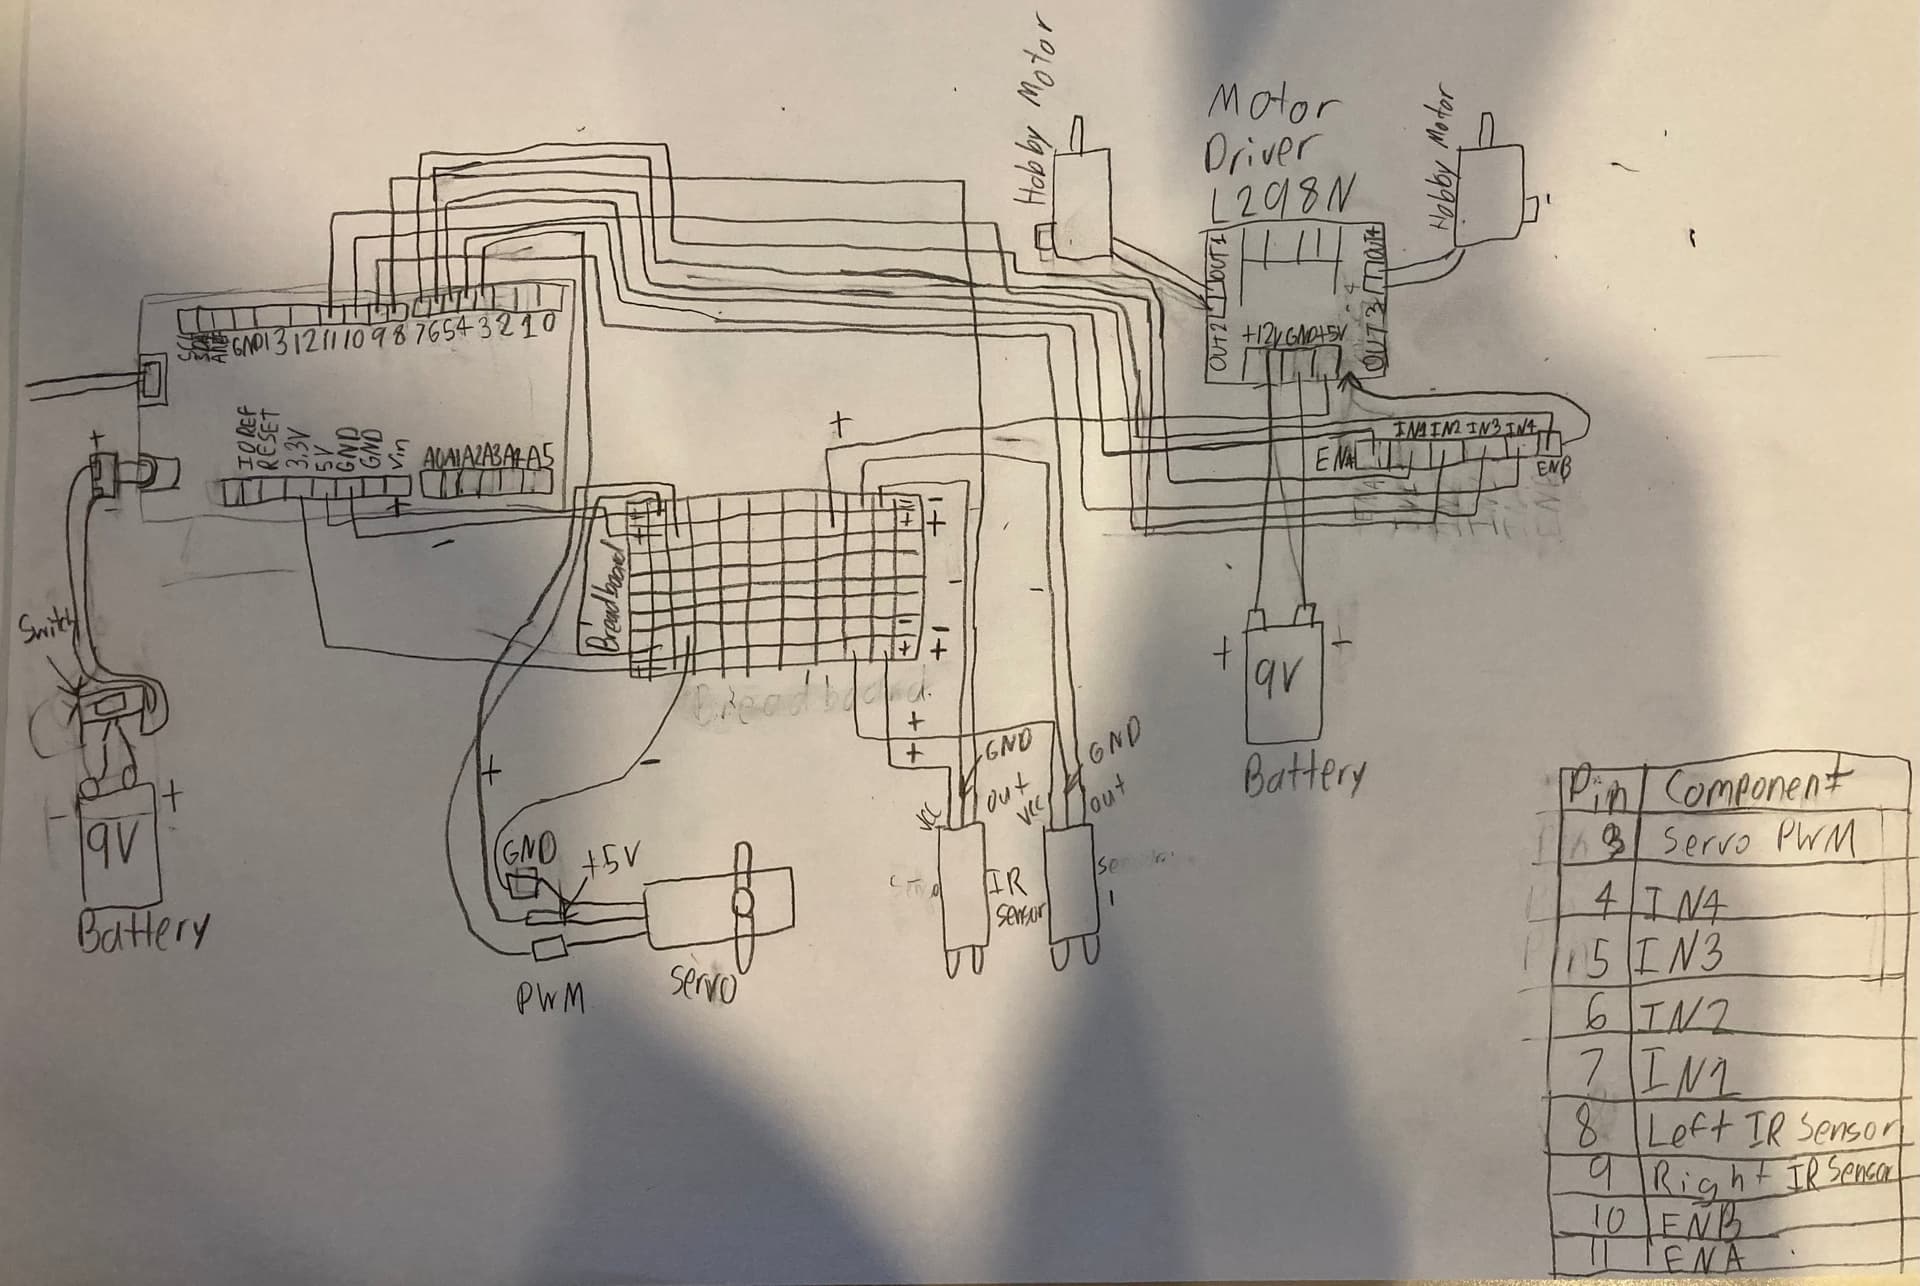 Hobby Motor
Motor
Driver
L298N
Hobby Motor
OUT1
OUT2
OUT4
OUT3
+12V GND +5V
GND 13 12 11 10 9 8 7 6 5 4 3 2 1 0
IOREF
RESET
3.3V
5V
GND
GND
Vin
A0 A1 A2 A3 A4 A5
+
+
-
+
-
+
ENA
IN1 IN2 IN3 IN4
ENB
Breadboard
-
+
-
+
Breadboard
Switch
+
-
9V
Battery
+
-
9V
Battery
+
-
+
+
GND
+5V
PWM
Servo
VCC
GND
out
VCC
GND
out
IR
Sensor
Pin Component
3 Servo PWM
4 IN4
5 IN3
6 IN2
7 IN1
8 Left IR Sensor
9 Right IR Sensor
10 ENB
11 ENA